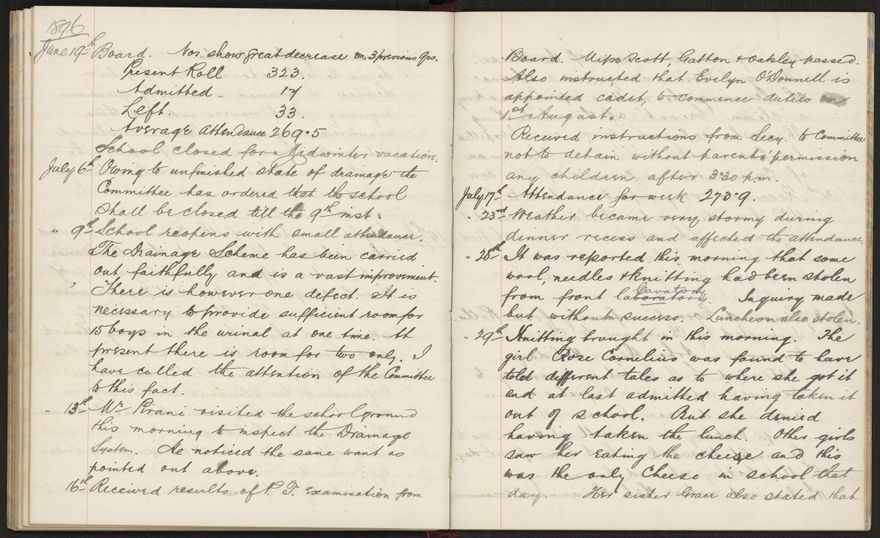 1896
June 19th Board. Nos. show great decrease on 3 previous Qrs.
Present Roll 323.
Admitted 17
Left. 33.
Average Attendance 269.5
School closed for Midwinter vacation.
July 6th Owing to unfinished state of drainage the
Committee has ordered that the school
shall be closed till the 9th inst.
" 9th School reopens with small attendance.
The Drainage Scheme has been carried
out faithfully and is a vast improvement.
" There is however one defect. It is
necessary to provide sufficient room for
15 boys in the urinal at one time. At
present there is room for two only. I
have called the attention of the Committee
to this fact.
" 13th Mr Pirani visited the school ground
this morning to inspect the Drainage
System. He noticed the same want as
pointed out above.
16th Received results of P. T. Examination from
Board. Miss Scott, Gatton & Oakley passed.
Also instructed that Evelyn O'Donnell is
appointed cadet, to commence duties
1st August.
Received instructions from Secy. to Committee
not to detain without parents permission
any children after 3.30 p.m.
July 17th Attendance for week 273.9.
" 23rd Weather became very stormy during
dinner recess and affected the attendance.
" 28th It was reported this morning that some
wool, needles & knitting had been stolen
from front laboratory. Lavatory Inquiry made
but without success. Luncheon also stolen.
" 29th Knitting brought in this morning. The
girl Rose Cornelius was found to have
told different tales as to where she got it
and at last admitted having taken it
out of school. But she denied
having taken the lunch. Other girls
saw her eating the cheese and this
was the only cheese in school that
day. Her sister Grace also stated that